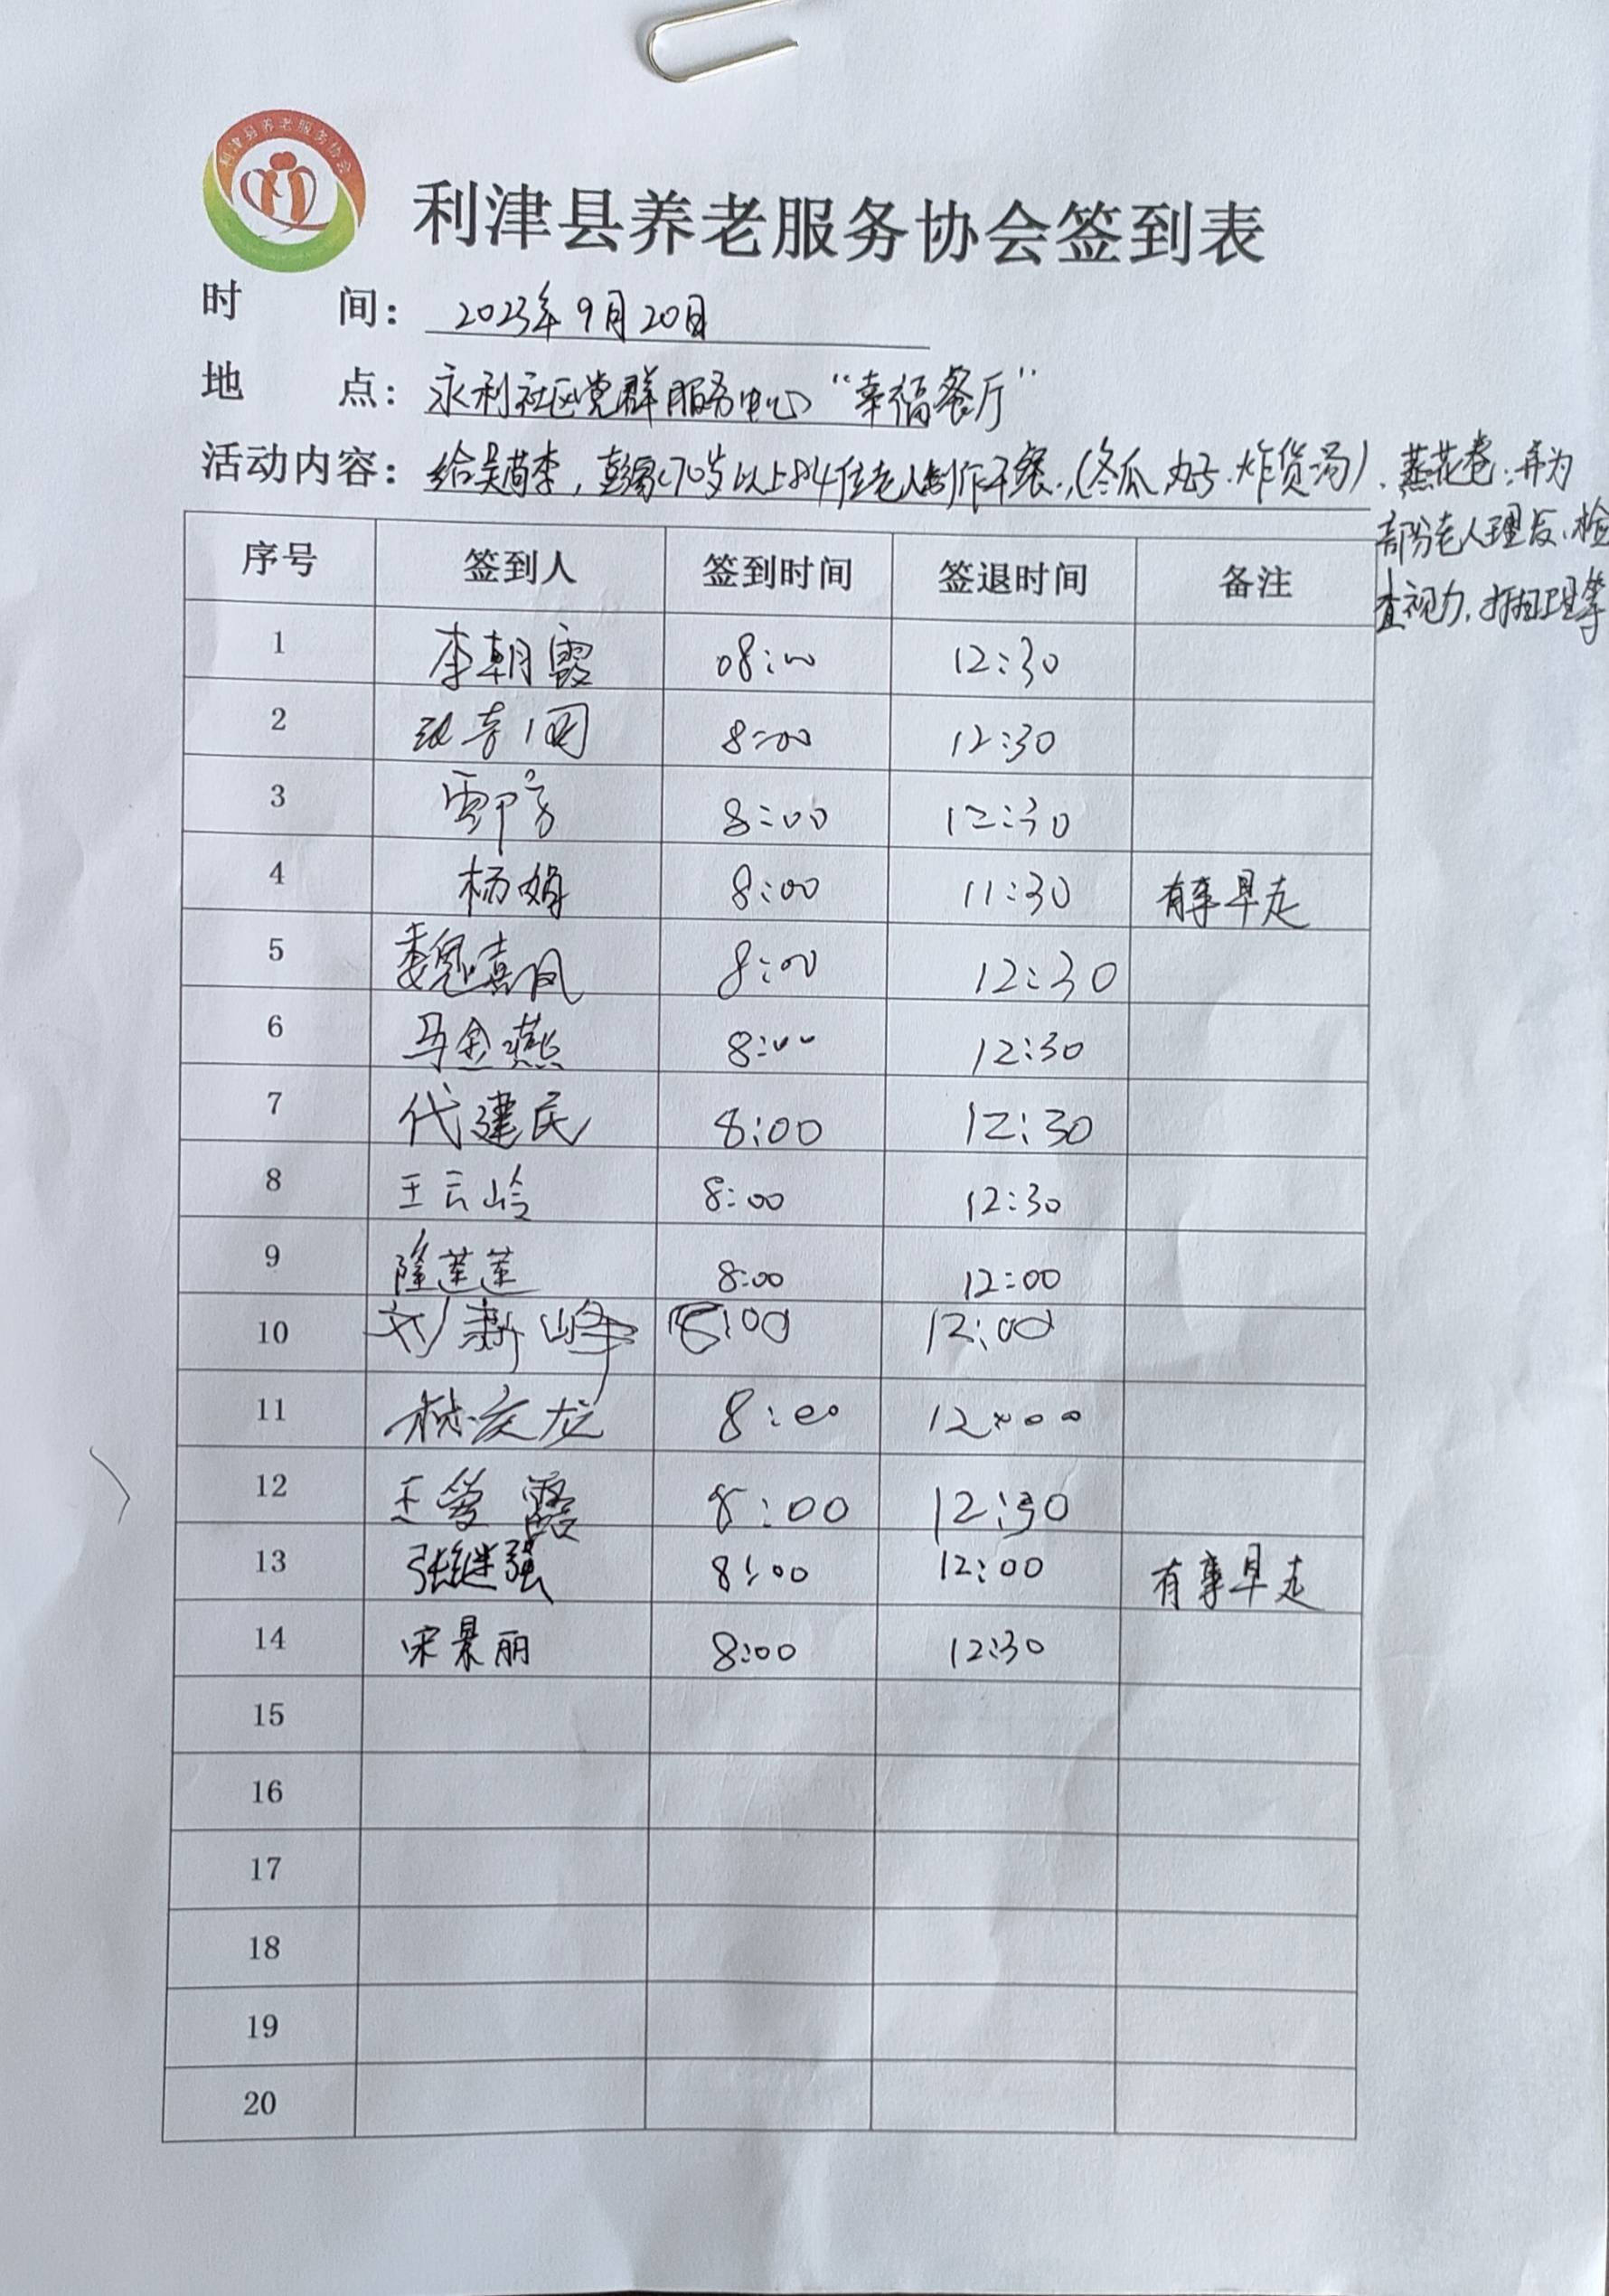 利津县养老服务协会
利津县养老服务协会签到表
时 间： 2023年9月20日
地 点： 永利社区党群服务中心“幸福餐厅”
活动内容： 给吴苟李，彭家70岁以上84位老人制作午餐，(冬瓜丸子.炸货汤)、蒸花卷；并为
部份老人理发、检
查视力.按摩等
序号 签到人 签到时间 签退时间 备注
1 李朝霞 08:00 12:30
2 8:00 12:30
3 8:00 12:30
4 杨娟 8:00 11:30 有事早走
5 魏嘉凤 8:00 12:30
6 马金燕 8:00 12:30
7 代建民 8:00 12:30
8 王云岭 8:00 12:30
9 隆莲莲 8:00 12:00
10 刘新峰 8:00 12:00
11 8:00 12:00
12 王曾露 8:00 12:30
13 张继强 8:00 12:00 有事早走
14 宋景丽 8:00 12:30
15
16
17
18
19
20